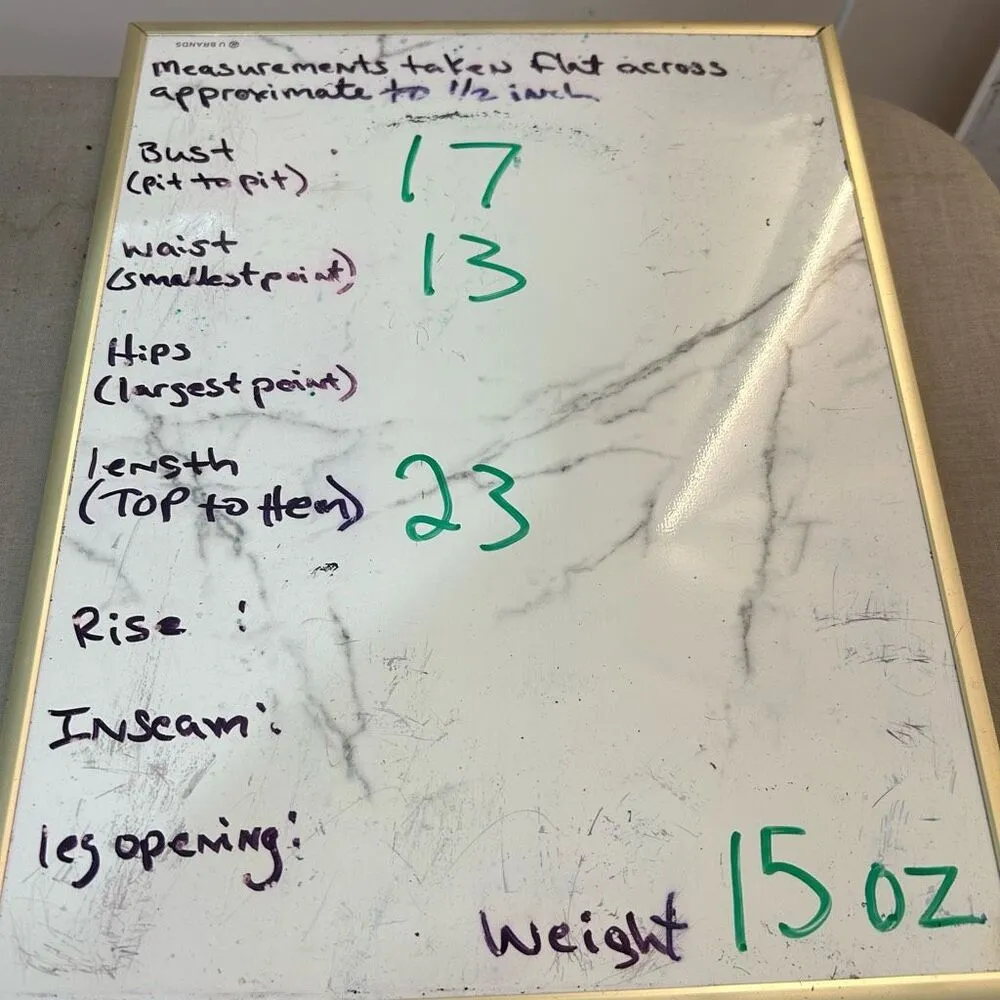 U BRANDS
Measurements taken flat across
approximate to 1/2 inch
Bust : 17
(pit to pit)
waist 13
(smallest point)
Hips
(largest point)
length 23
(TOP to Hem)
Rise :
Inseam :
leg opening :
Weight 15 oz